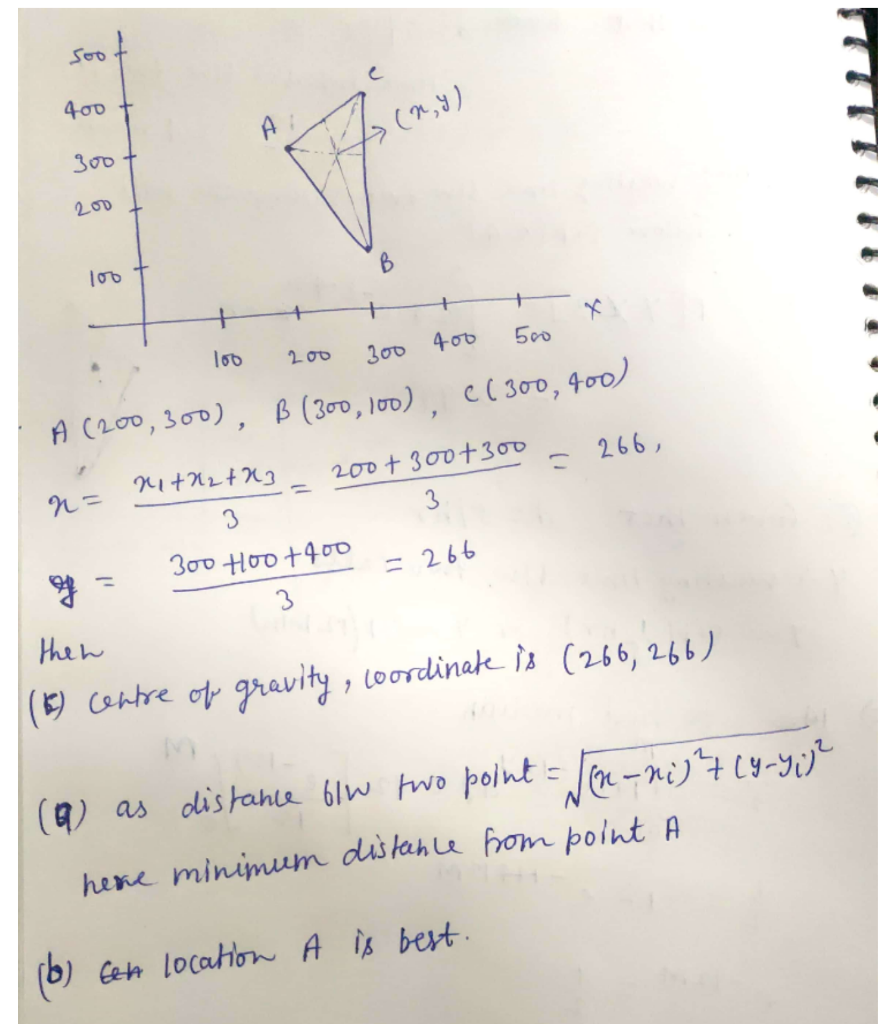 500
C
400
A
(x,y)
300
200
B
100
X
100 200 300 400 500
A (200,300), B (300,100), C (300,400)
x = x1+x2+x3 / 3 = 200+300+300 / 3 = 266,
y = 300+100+400 / 3 = 266
then
(c) centre of gravity, coordinate is (266,266)
(a) as distance b/w two point = √(x-xi)²+(y-yi)²
here minimum distance from point A
(b) location A is best.